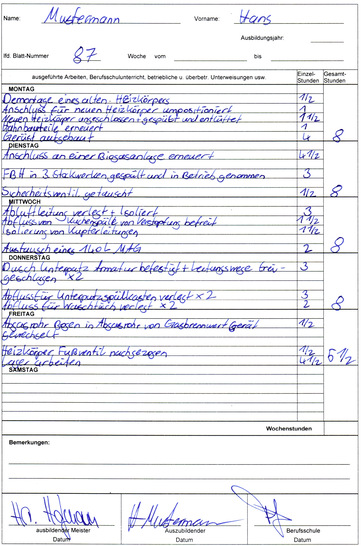 Name: Mustermann Vorname: Hans
Ausbildungsjahr:
lfd. Blatt-Nummer 87 Woche vom bis
ausgeführte Arbeiten, Berufsschulunterricht, betriebliche u. überbetr. Unterweisungen usw. Einzel-Stunden Gesamt-Stunden
MONTAG
Demontage eines alten Heizkörpers 1/2
Anschluss für neuen Heizkörper umpositioniert 1
Neuen Heizkörper angeschlossen + gespühlt und entlüftet 1 1/2
Zahnbauteile erneuert 1
Gerüst aufgebaut 4 8
DIENSTAG
Anschluss an einer Biogasanlage erneuert 4 1/2
FBH in 3 Stockwerken gespühlt und in Betrieb genommen 3
Sicherheitsventil getauscht 1/2 8
MITTWOCH
Abluftleitung verlegt + Isoliert 3
Abfluss von Küchenspüle von Verstopfung befreit 1 1/2
Isolierung von Kupferleitungen 1 1/2
Austausch eines 140L MAG 2 8
DONNERSTAG
Dusch Unterputz Armatur befestigt + Leitungswege frei-
geschlagen x2 3
Abfluss für Unterputzspülkasten verlegt x2 3
Abfluss für Waschtisch verlegt x2 2 8
FREITAG
Abgasrohr Bogen in Abgasrohr von Gasbrennwert Gerät 1/2
gewechselt
Heizkörper Fußventil nachgezogen 1/2
Lager arbeiten 4 1/2 5 1/2
SAMSTAG
Wochenstunden
Bemerkungen:
Mustermann
ausbildender Meister Auszubildender Berufsschule
Datum Datum Datum